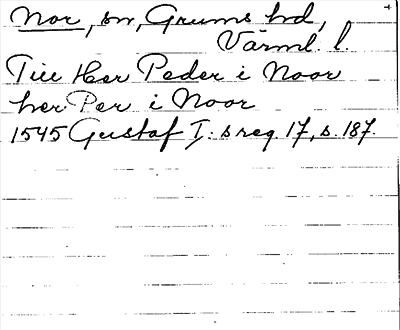 Nor, sn, Grums hd,
Värml. l.
Till Her Peder i Noor
her Per i Noor
1545 Gustaf I: s reg. 17, s. 187.